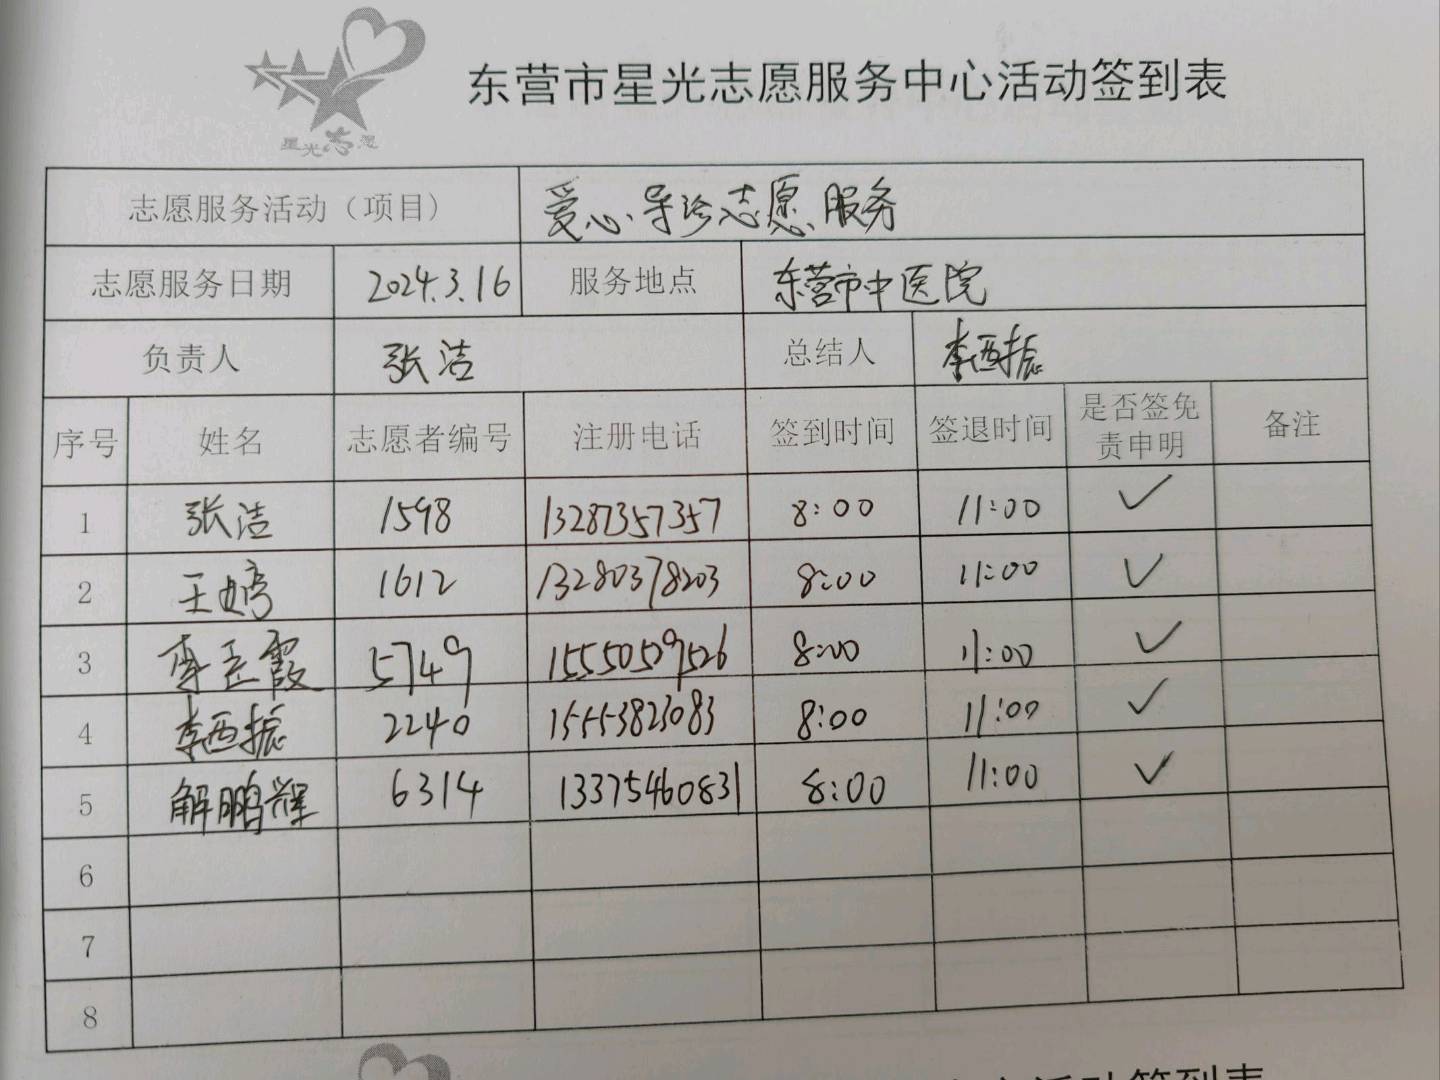 星光志愿
东营市星光志愿服务中心活动签到表
志愿服务活动（项目） 爱心导诊志愿服务
志愿服务日期 2024.3.16 服务地点 东营市中医院
负责人 张洁 总结人 李西振
序号 姓名 志愿者编号 注册电话 签到时间 签退时间 是否签免责申明 备注
1 张洁 1598 13287357357 8:00 11:00 ✓
2 王婷 1612 13280378203 8:00 11:00 ✓
3 李玉霞 5749 15550529526 8:00 11:00 ✓
4 李西振 2240 15553823083 8:00 11:00 ✓
5 解鹏辉 6314 13375460831 8:00 11:00 ✓
6
7
8